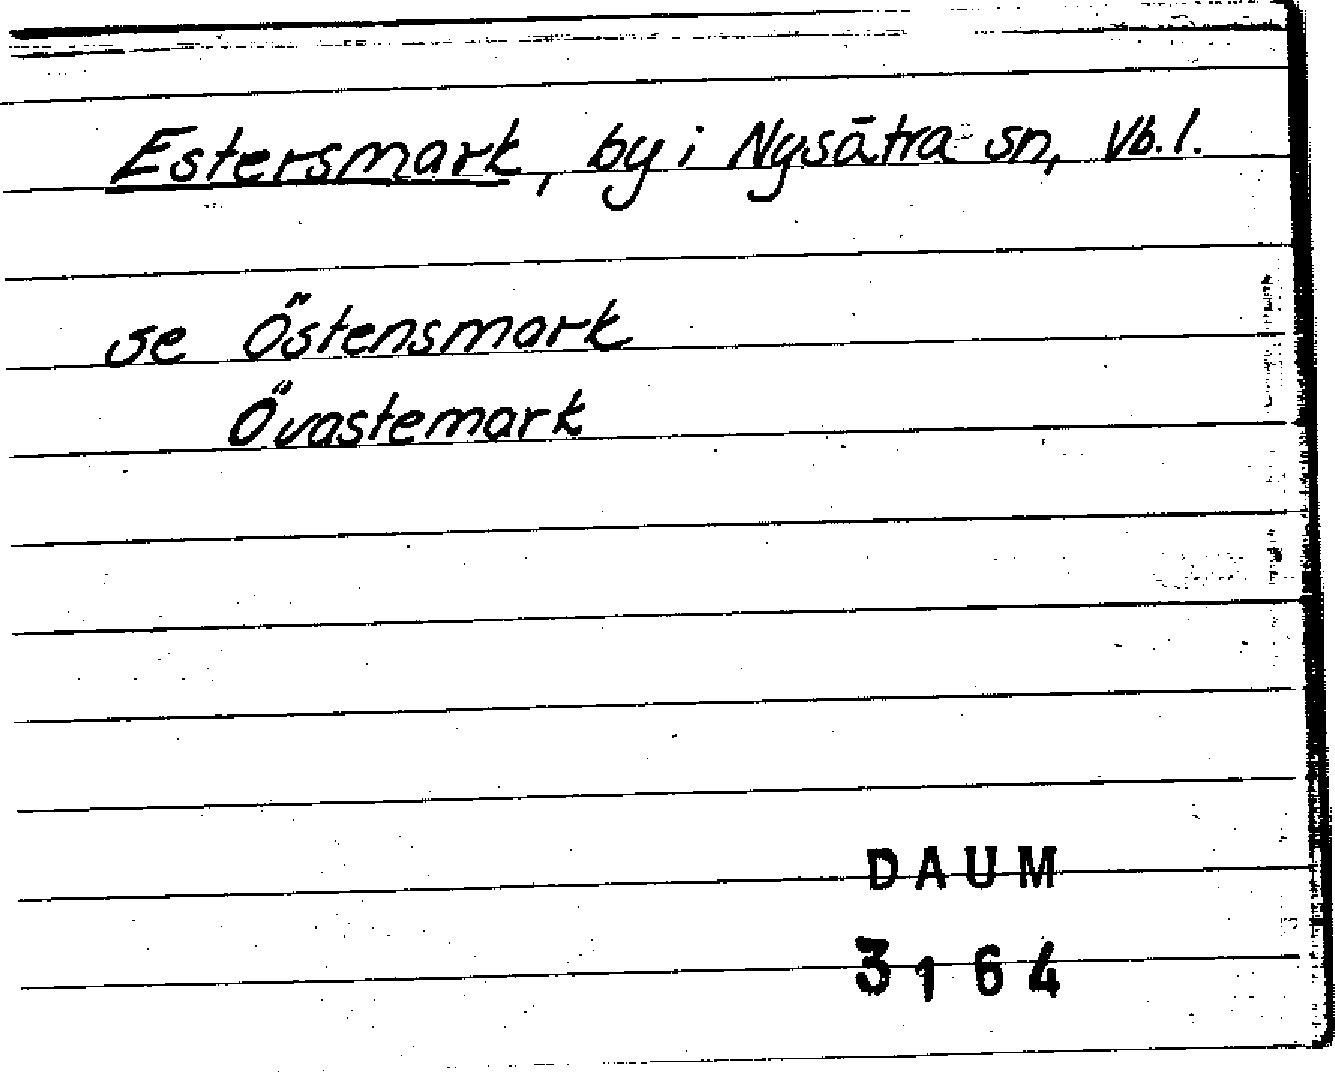 Estersmark, by i Nysätra sn, Vb.l.
se Östensmark
Övastemark
DAUM
3164